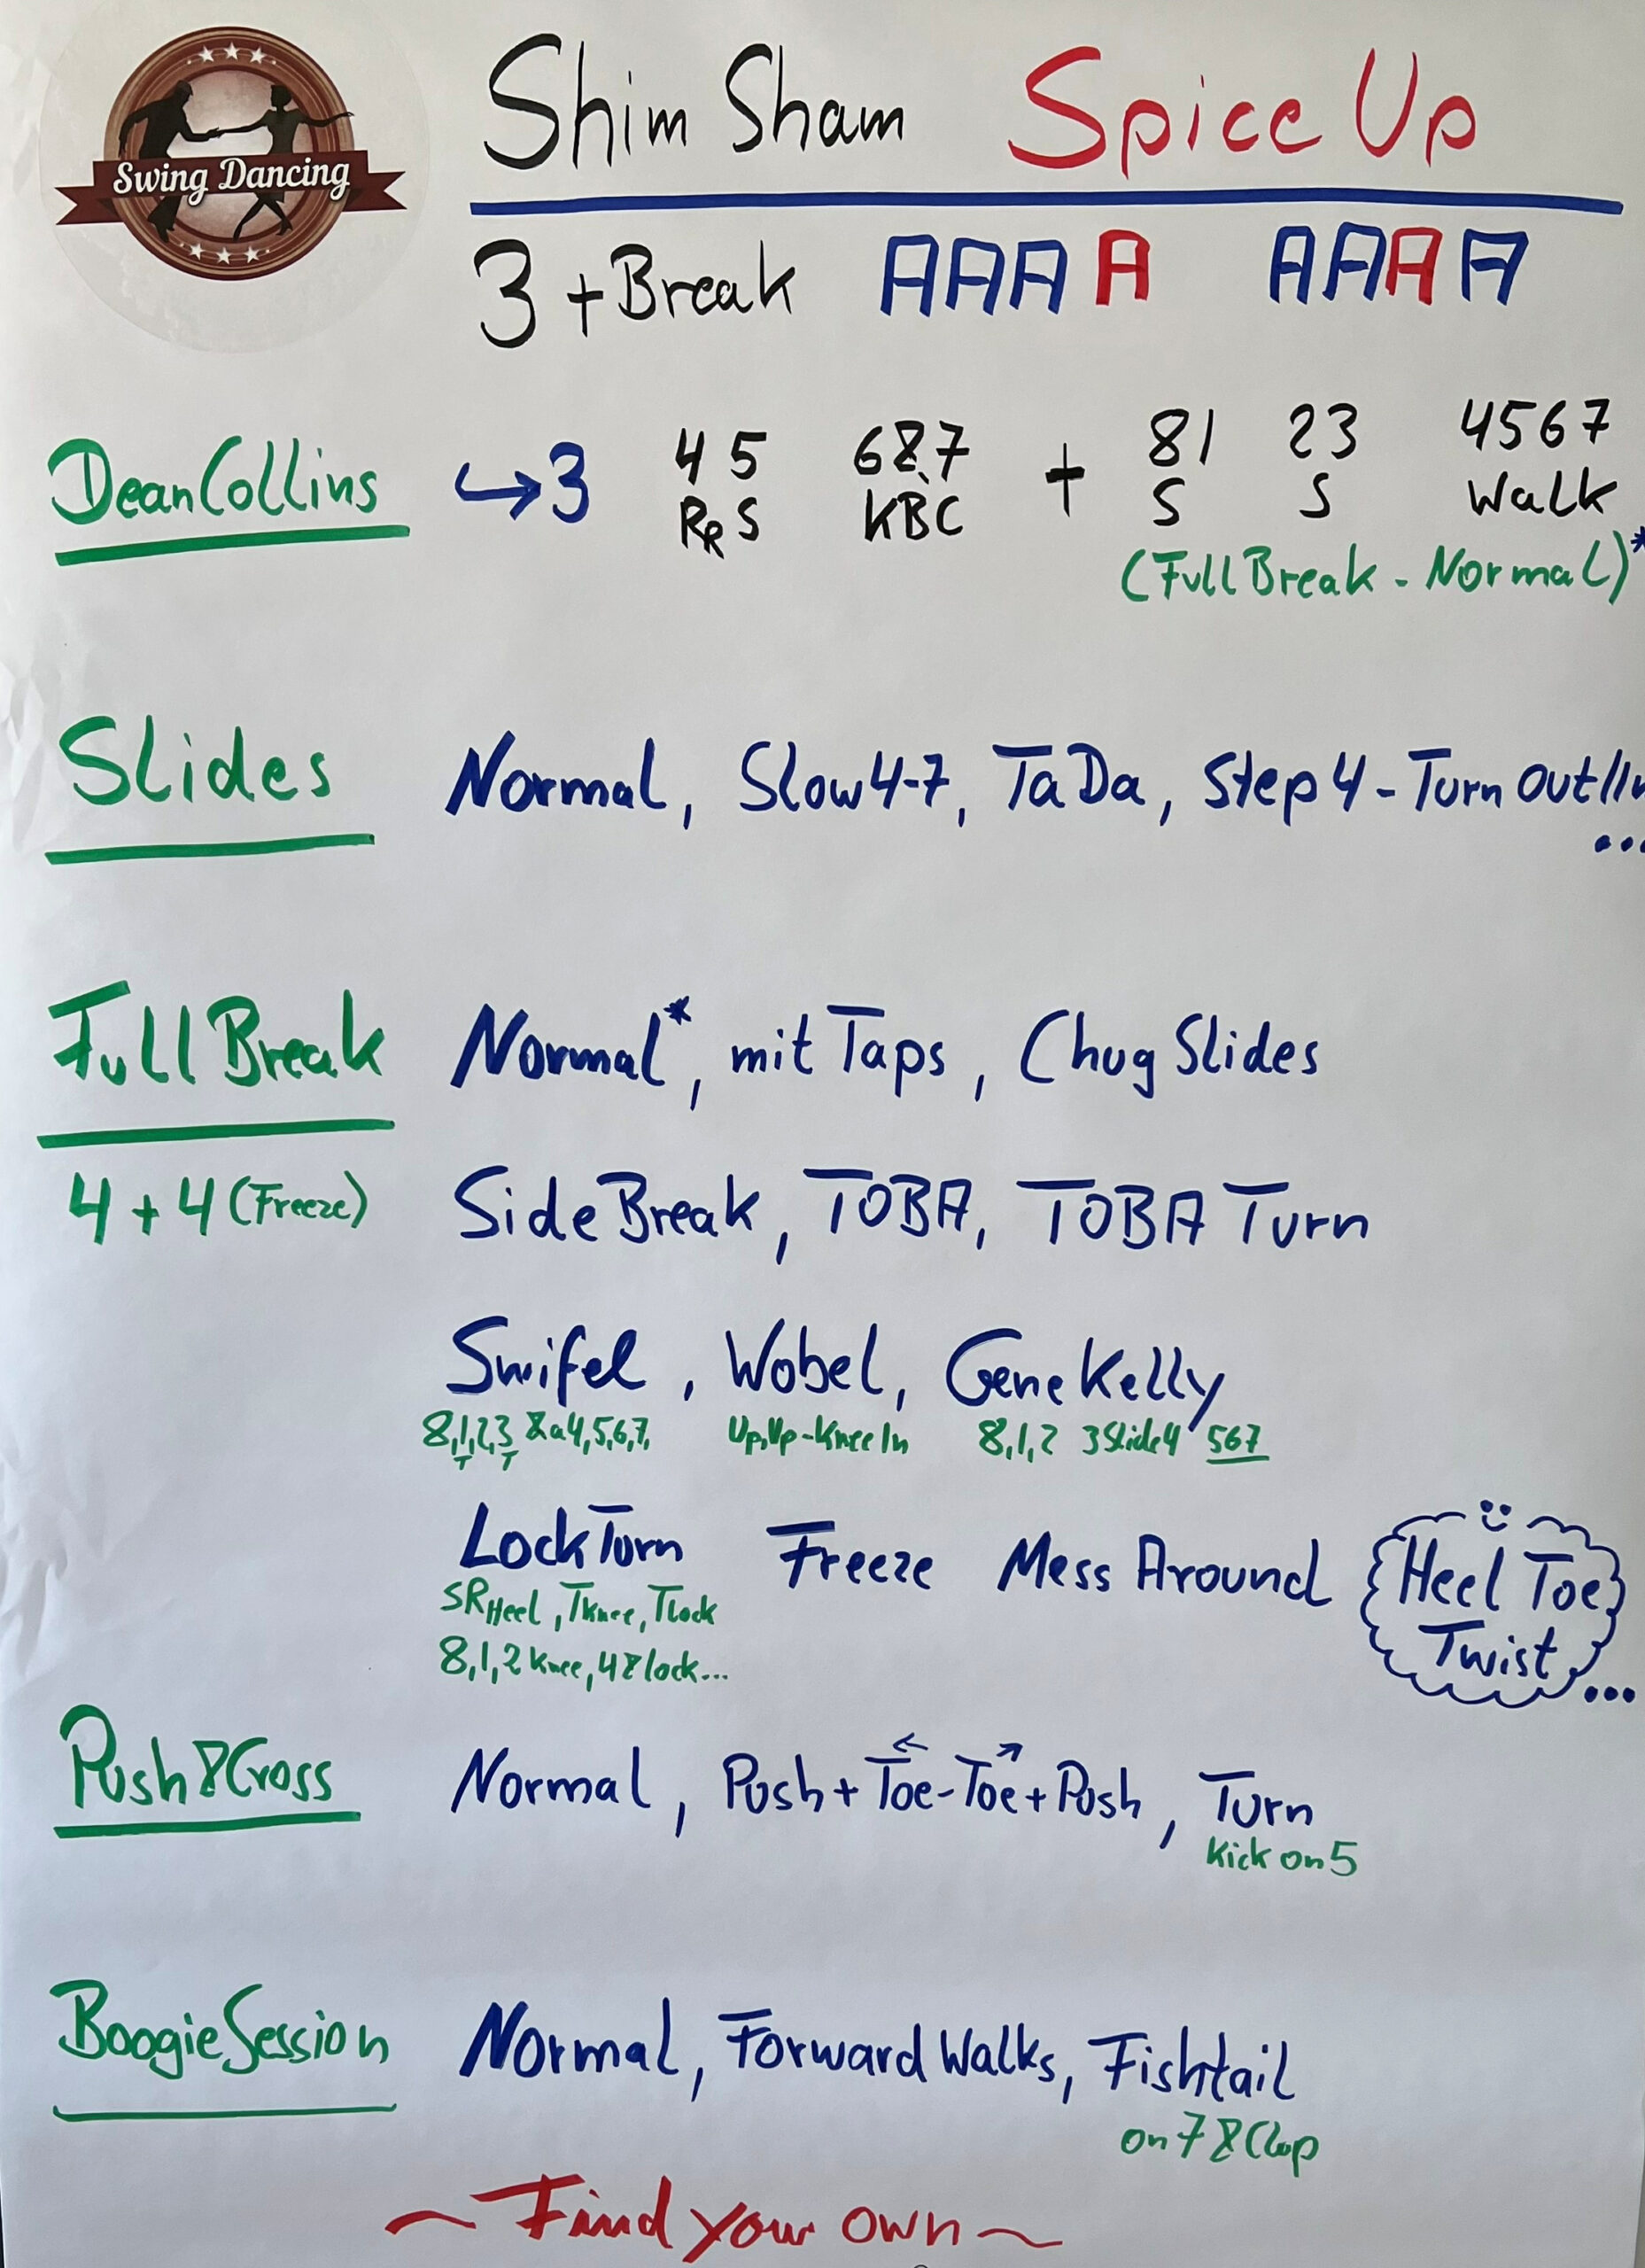 Swing Dancing
Shim Sham Spice Up
3 + Break AAA A AAAA
Dean Collins ↪3 4 5 6&7 + 81 23 4567
RR S KBC S S Walk
(Full Break - Normal)*
Slides Normal, Slow 4-7, TaDa, Step 4 - Turn Out/In
...
Full Break Normal*, mit Taps, Chug Slides
4 + 4 (Freeze) Side Break, TOBA, TOBA Turn
Swifel, Wobel, Gene Kelly
8,1,2,3 &a4,5,6,7, Up,Up-Knee In 8,1,2 3Slide4 567
T T
Lock Turn Freeze Mess Around Heel Toe
SR Heel, TKnee, TLock Twist ...
8,1,2 Knee, 4&lock...
Push&Cross Normal, Push + Toe - Toe + Push, Turn
Kick on 5
Boogie Session Normal, Forward Walks, Fishtail
on 7 & Clap
~ Find your own ~